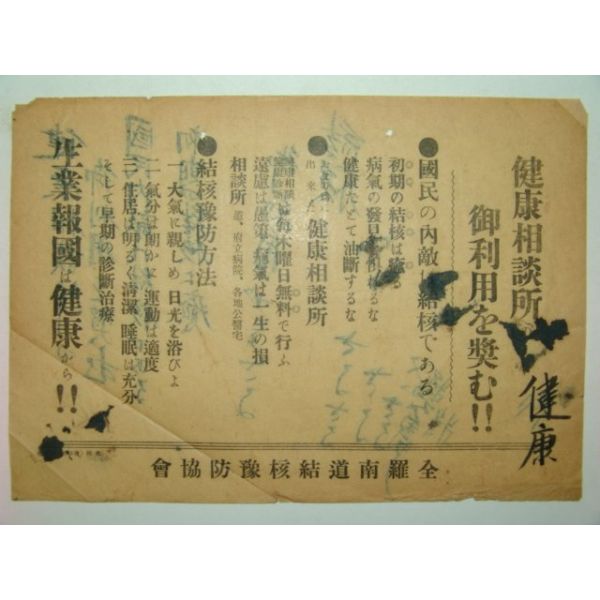 健康相談所
御利用を奬む!!
健康
●國民の內敵は結核である
初期の結核は癒る
病氣の發見を恐れるな
健康だとて油斷するな
●健康相談所
出來た
每木曜日無料で行ふ
遠慮は愚策、病氣は一生の損
相談所 道、府立病院、各地公醫宅
●結核豫防方法
一、大氣に親しめ 日光を浴びよ
二、氣分は朗かに 運動は適度
三、住居は明るく淸潔、睡眠は充分
そして早期の診斷治療
生業報國は健康から!!
全羅南道結核豫防協會